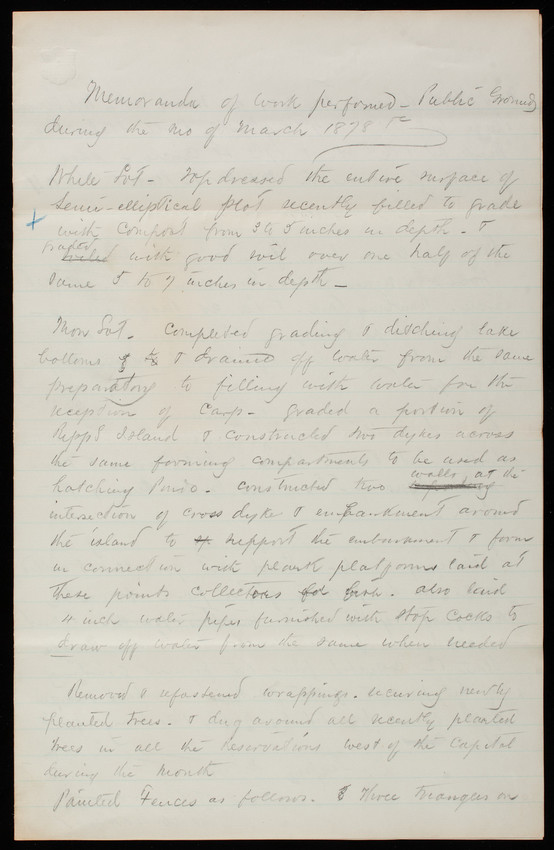 Memoranda of work performed - Public Grounds
during the mo of March 1878
White Lot - Top dressed the entire surface of
Semi-elliptical plot recently filled to grade
with compost from 3 to 5 inches in depth - &
graded
with good soil over one half of the
same 5 to 7 inches in depth -
Mon Lot. Completed grading & ditching lake
bottoms & drained off water from the same
preparatory to filling with water for the
reception of Carp - graded a portion of
Island & constructed two dykes across
the same forming compartments to be used as
walls, at the
hatching Ponds. Constructed two
intersection of cross dyke & embankment around
the island to support the embankment & form
in connection with plank platforms laid at
these points collectors for fish. also laid
4 inch water pipes furnished with stop cocks to
draw off water from the same when needed
Removed & refastened wrappings. securing newly
planted trees. & dug around all recently planted
trees in all the Reservations west of the Capitol
during the month
Painted Fences as follows. Three triangles on